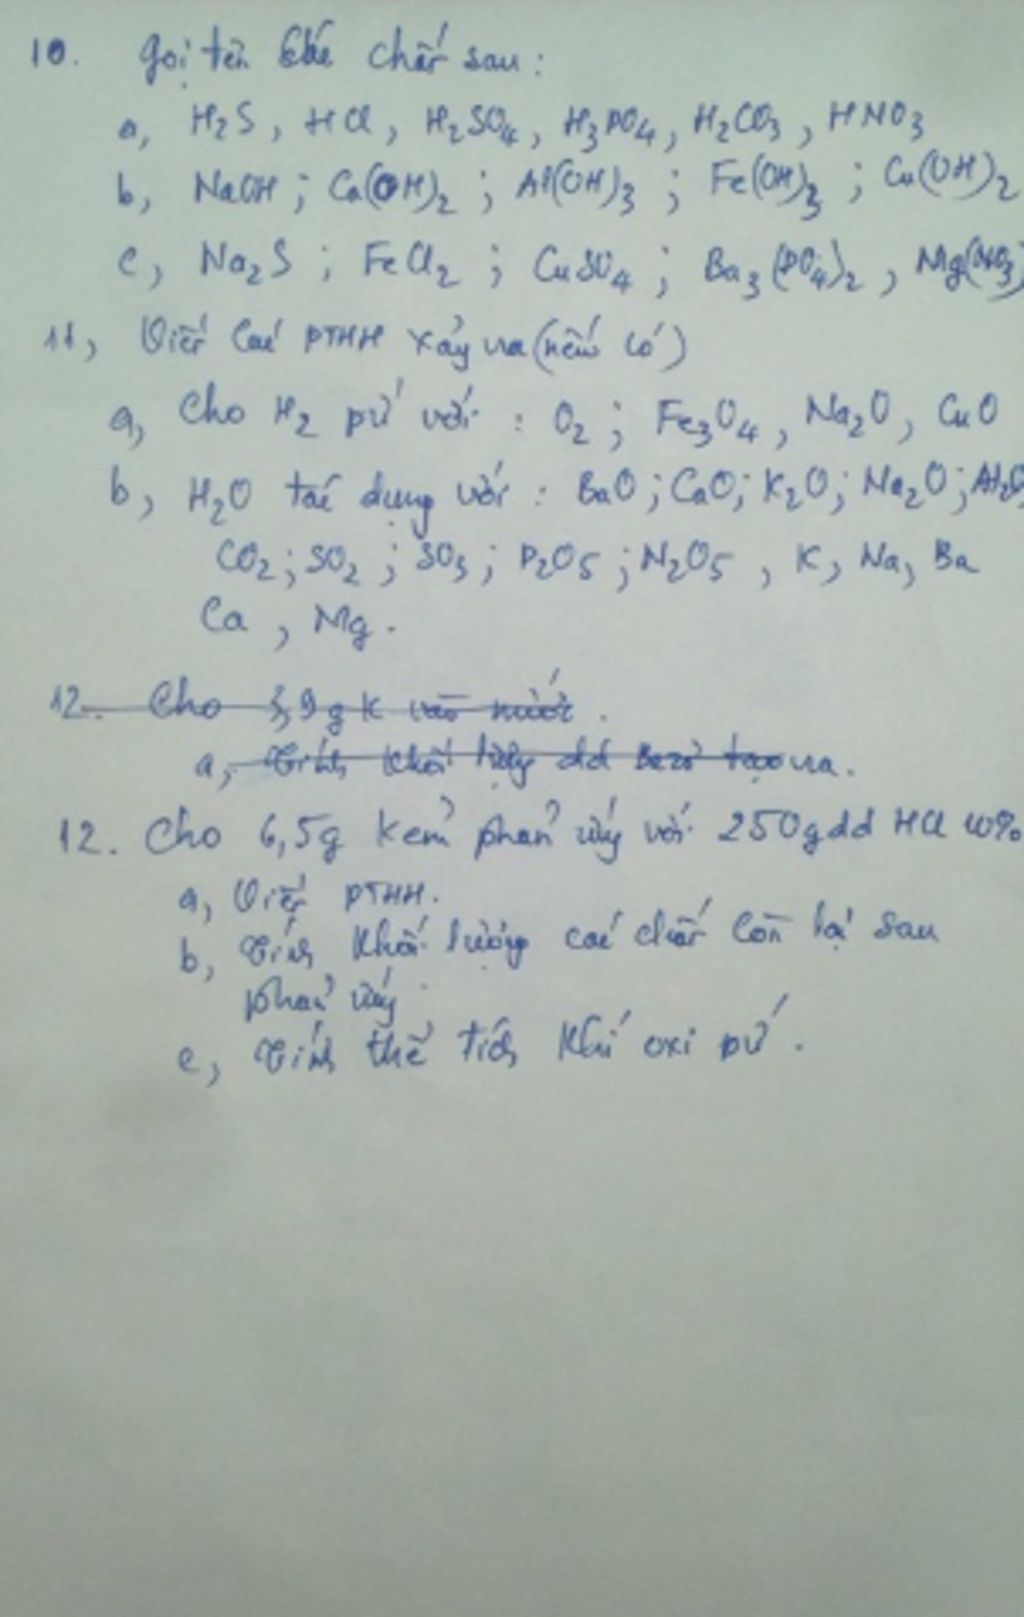 10. Gọi tên các chất sau:
a, H₂S, HCl, H₂SO₄, H₃PO₄, H₂CO₃, HNO₃
b, NaOH; Ca(OH)₂; Al(OH)₃; Fe(OH)₃; Cu(OH)₂
c, Na₂S; FeCl₂; CuSO₄; Ba₃(PO₄)₂, Mg(NO₃)
11, Viết các PTHH xảy ra (nếu có)
a, Cho H₂ pứ với: O₂; Fe₃O₄, Na₂O, CuO
b, H₂O tác dụng với: BaO; CaO; K₂O; Na₂O; Al₂O
CO₂; SO₂; SO₃; P₂O₅; N₂O₅, K, Na, Ba
Ca, Mg.
12. Cho 3,9g K vào nước.
a, Tính khối lượng dd bazơ tạo ra.
12. Cho 6,5g kẽm phản ứng với 250g dd HCl 10%
a, Viết PTHH.
b, Tính khối lượng các chất còn lại sau
phản ứng
c, Tính thể tích khí oxi pứ.